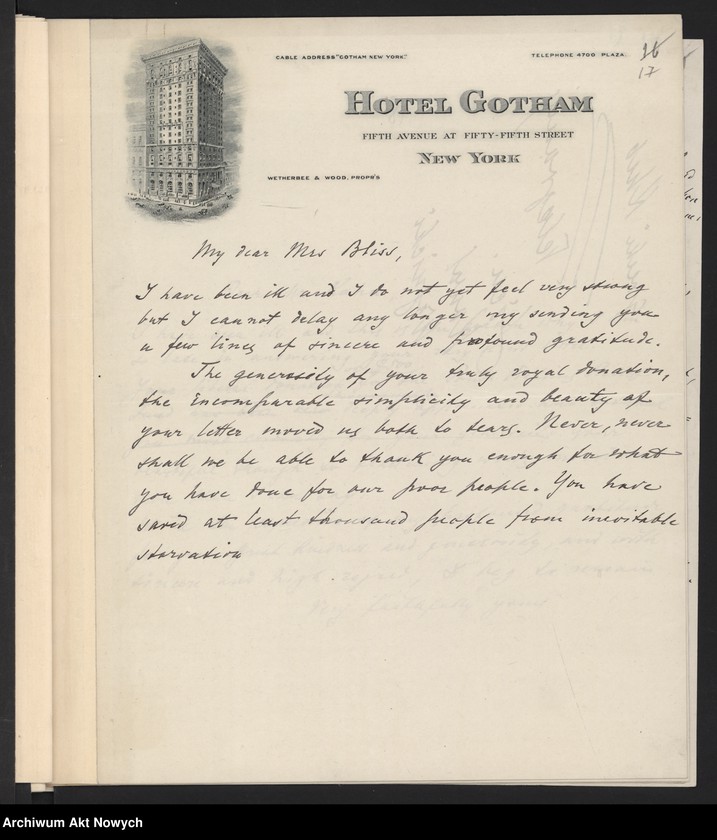 CABLE ADDRESS "GOTHAM NEW YORK."
TELEPHONE 4700 PLAZA.
16
17
HOTEL GOTHAM
FIFTH AVENUE AT FIFTY-FIFTH STREET
NEW YORK
WETHERBEE & WOOD, PROPR'S
My dear Mrs Bliss,
I have been ill and I do not yet feel very strong
but I cannot delay any longer my sending you
a few lines of sincere and profound gratitude.
The generosity of your truly royal donation,
the incomparable simplicity and beauty of
your letter moved us both to tears. Never, never
shall we be able to thank you enough for what
you have done for our poor people. You have
saved at least thousand people from inevitable
starvation
Archiwum Akt Nowych